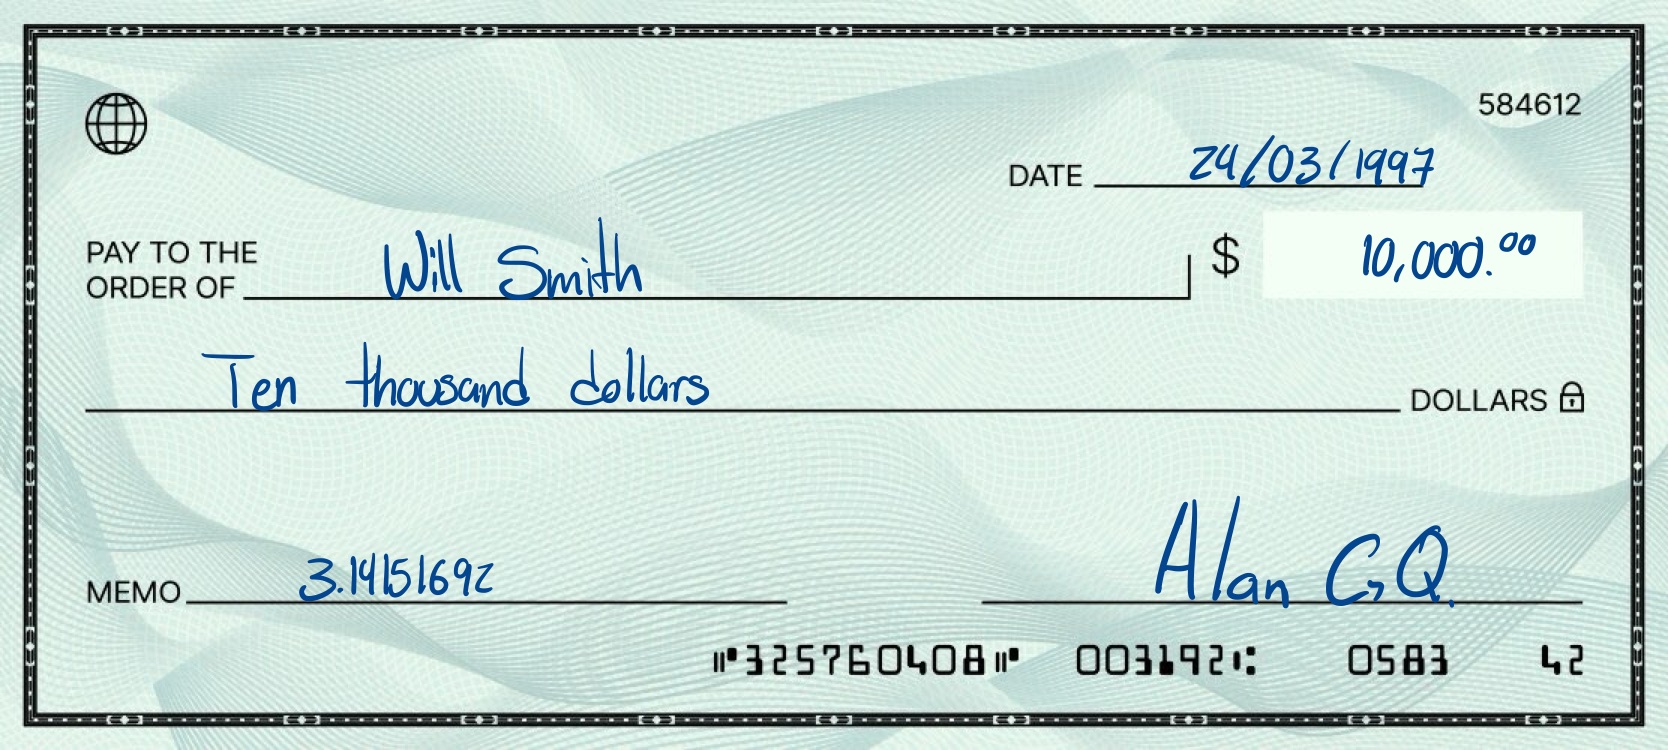 584612
DATE 24/03/1997
PAY TO THE
ORDER OF Will Smith $ 10,000.00
Ten thousand dollars DOLLARS
MEMO 3.14151692 Alan G,Q.
⑈325760408⑈ 003192⑆ 0583 42